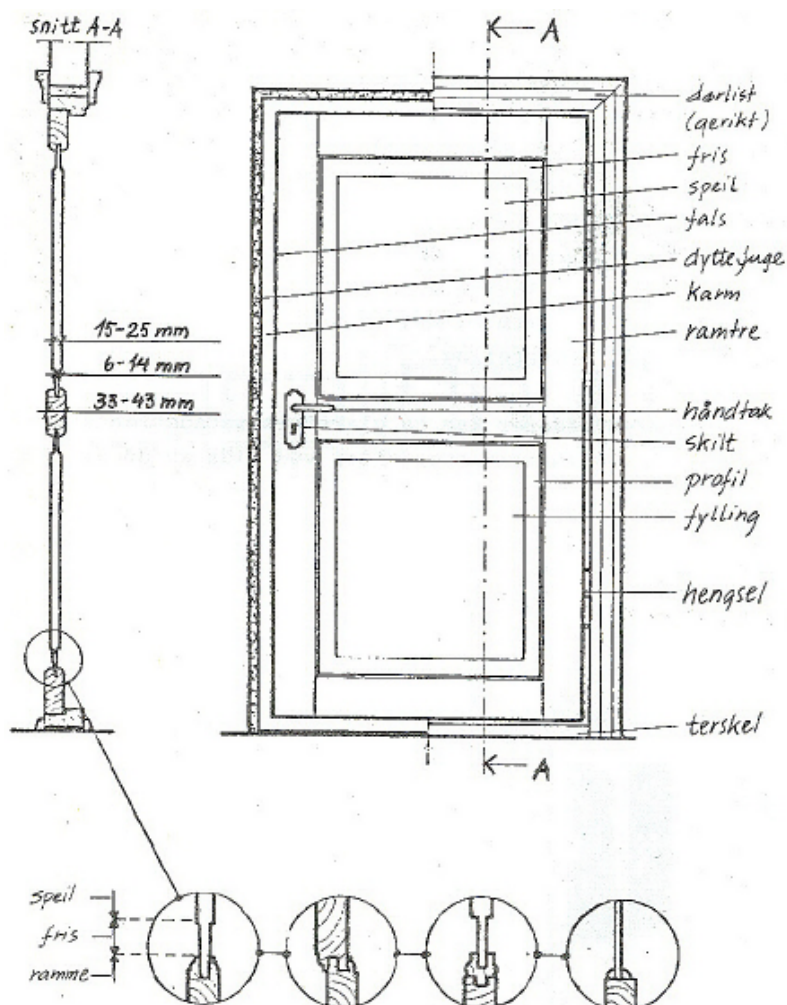 snitt A-A
A
dørlist
(gerikt)
fris
speil
fals
dyttefuge
karm
15-25 mm
ramtre
6-14 mm
33-43 mm
håndtak
skilt
profil
fylling
hengsel
terskel
A
speil
fris
ramme